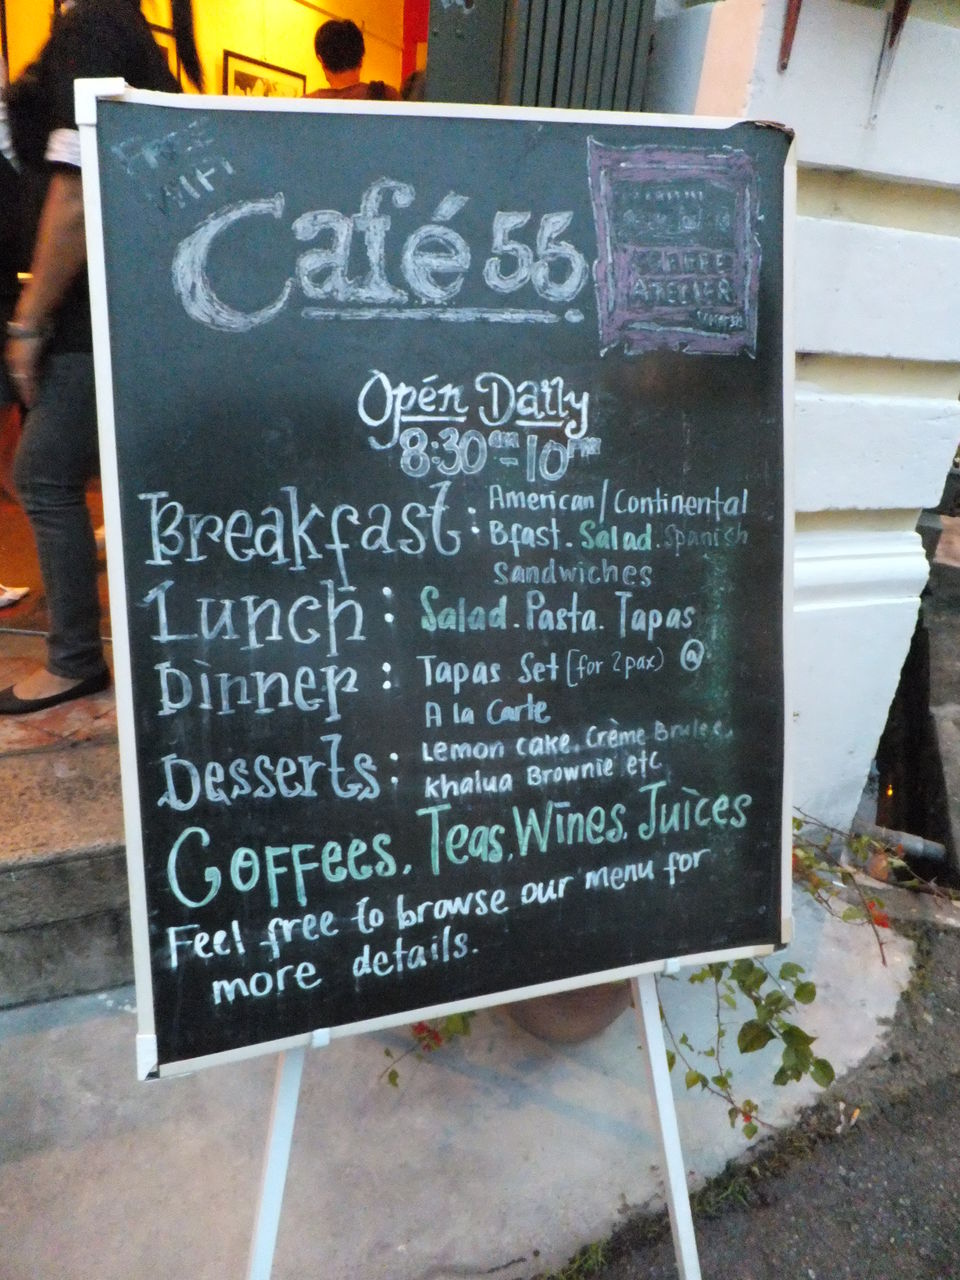 FREE
WIFI
Café 55
CAFFE
ATELIER
Opén Daily
8:30am - 10PM
Breakfast : American/Continental
Bfast. Salad. Spanish
Sandwiches
Lunch : Salad. Pasta. Tapas
Dinner : Tapas Set (for 2 pax) @
A la Carte
Desserts : Lemon cake, Crème Brulee,
Khalua Brownie etc
Coffees, Teas, Wines, Juices
Feel free to browse our menu for
more details.